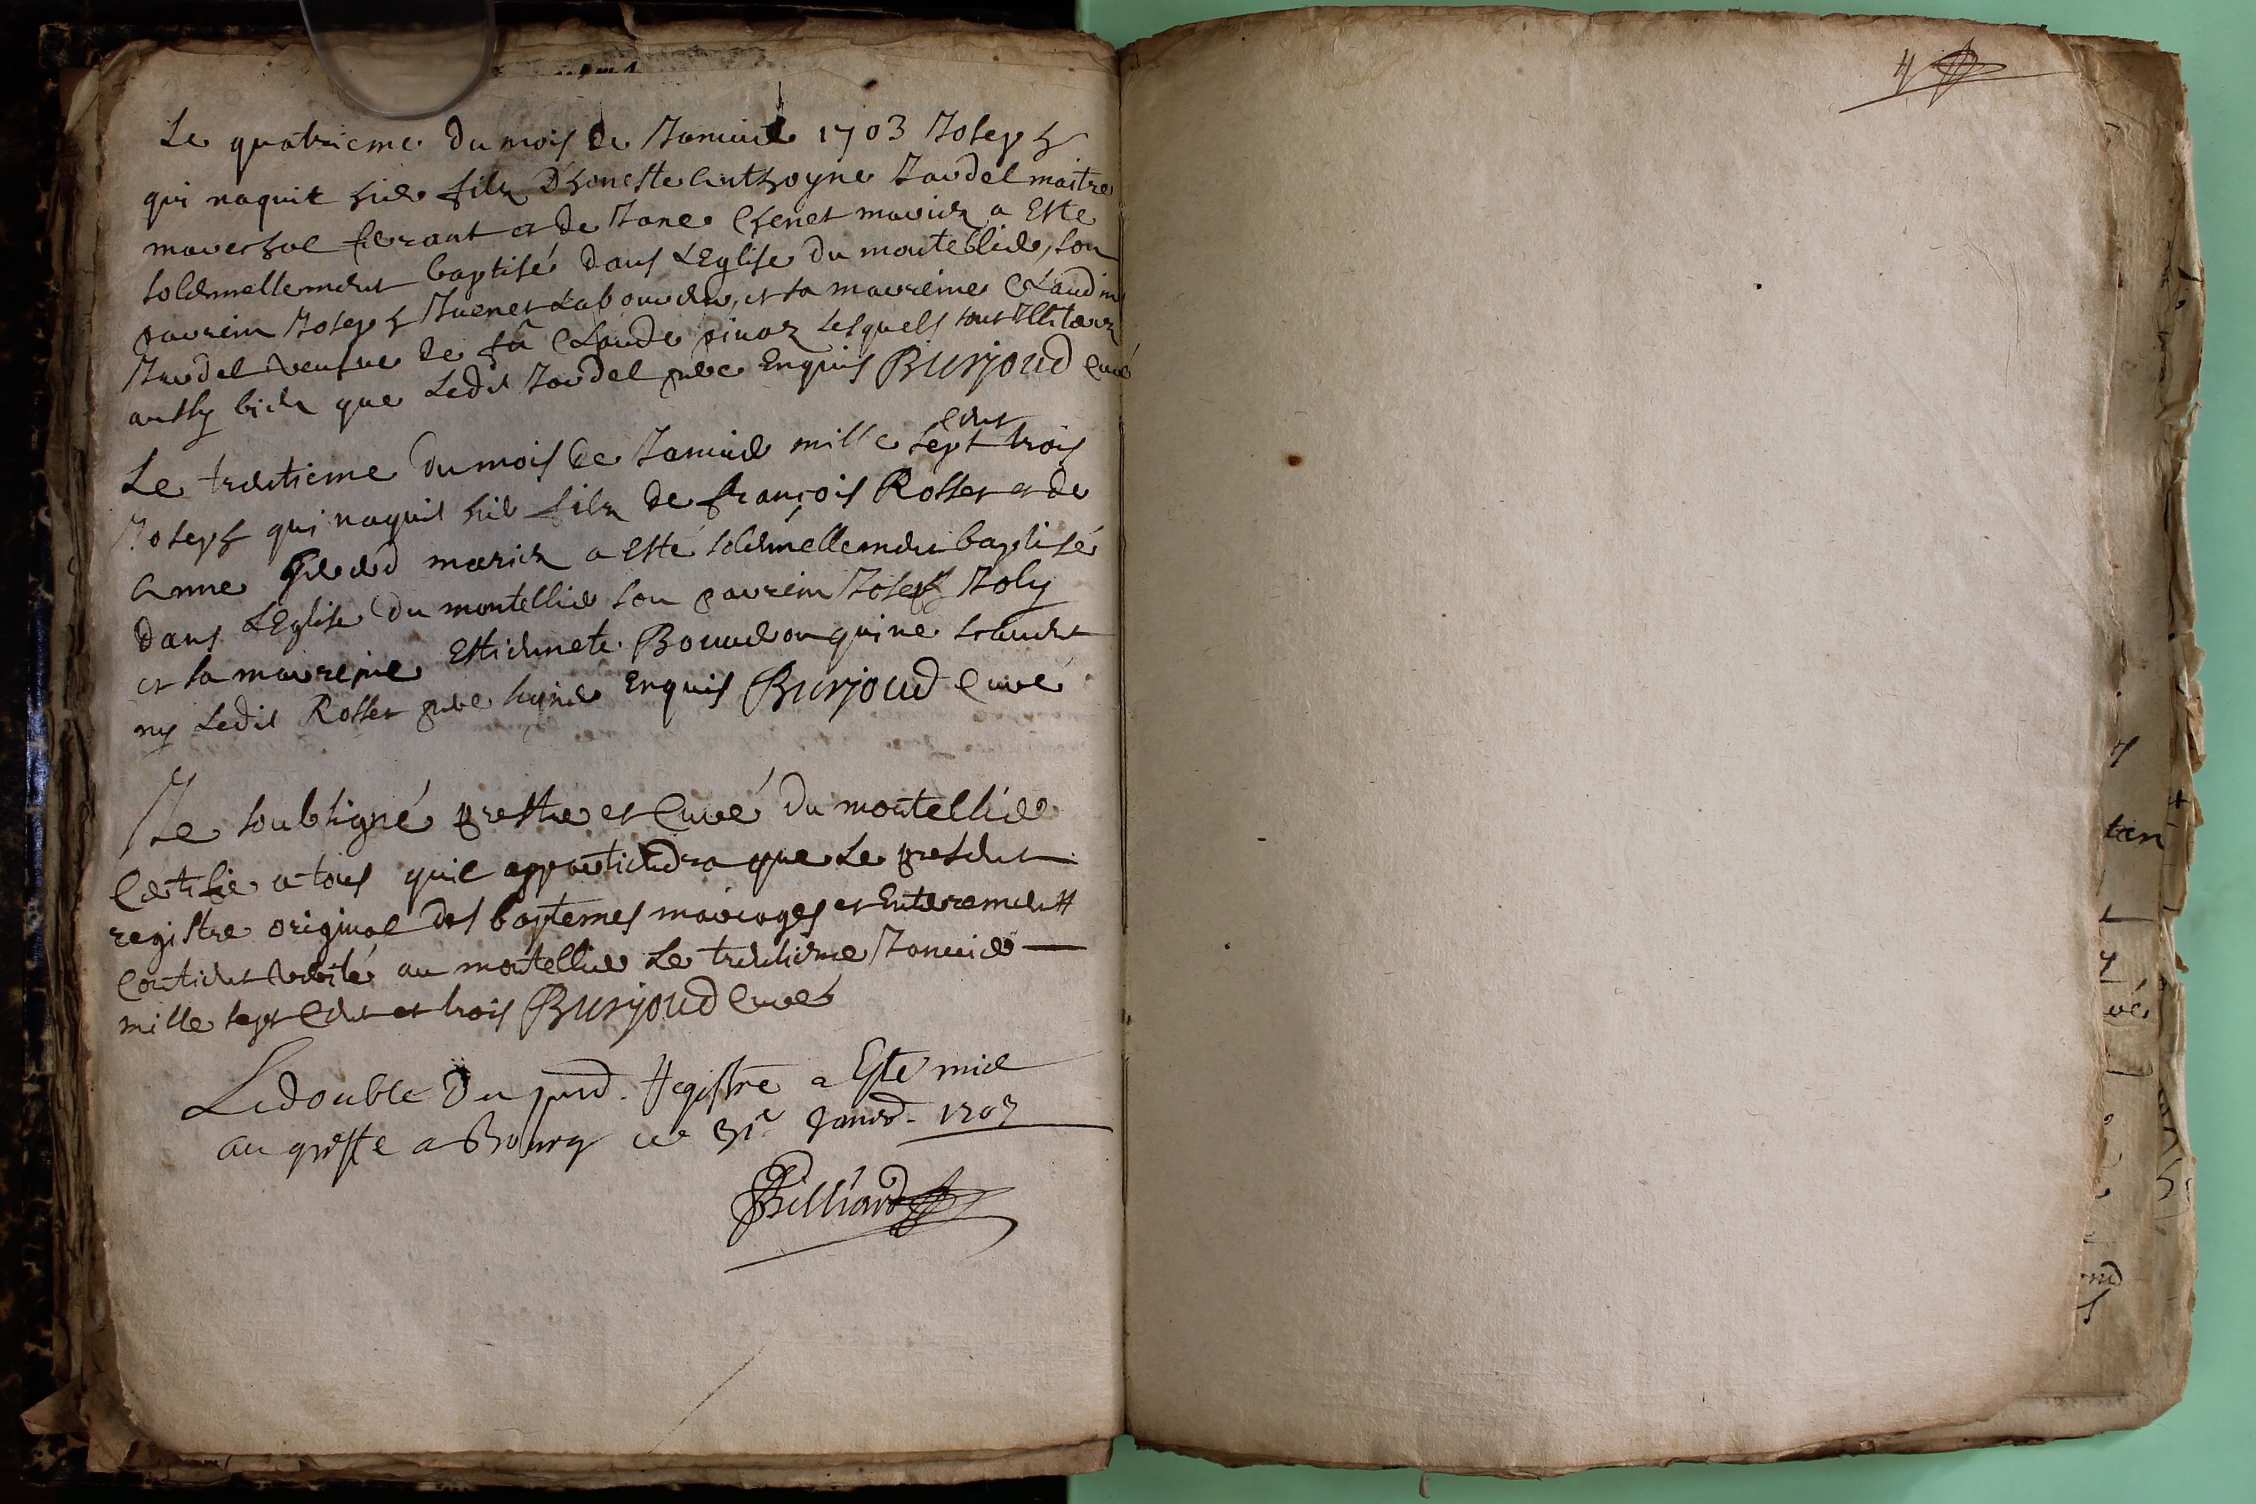 Le quatrieme du mois de Janvier 1703 Joseph
qui naquit hier filz D'honeste Anthoyne Jardel maitre
mareshal ferrant et de Jane Chenet mariez a Este
solemnellement baptisé dans L'Eglise du montellier, son
parrein Joseph Juenet Laboureur, et sa marreine Claudine
Jardel veusve de fû Claude pinoz Lesquels sont Illiterez
aussy bien que Ledit Jardel pere Enquis Burjoud Curé
Cent
Le trentieme du mois de Janvier mille sept trois
Joseph qui naquit hier filz de françois Rosset et de
Anne mariez a esté solemnellement baptisé
dans L'Eglise du montellier son parrein Joseph Joly
et sa marreine Estiennete qui ne scauent
ny Ledit Rosset pere signer Enquis Burjoud Curé
Je soubsigné prestre et Curé du montellier
Certifie a tous qu'il appartiendra que Le present
registre original des baptemes mariages et Enterements
Contient verité au montellier Le trentieme Janvier
mille sept Cent et trois Burjoud Curé
Le double Du pnt. Registre a Esté mis
au greffe a Bourg ce 31e Janvr. 1703
Billiard
4